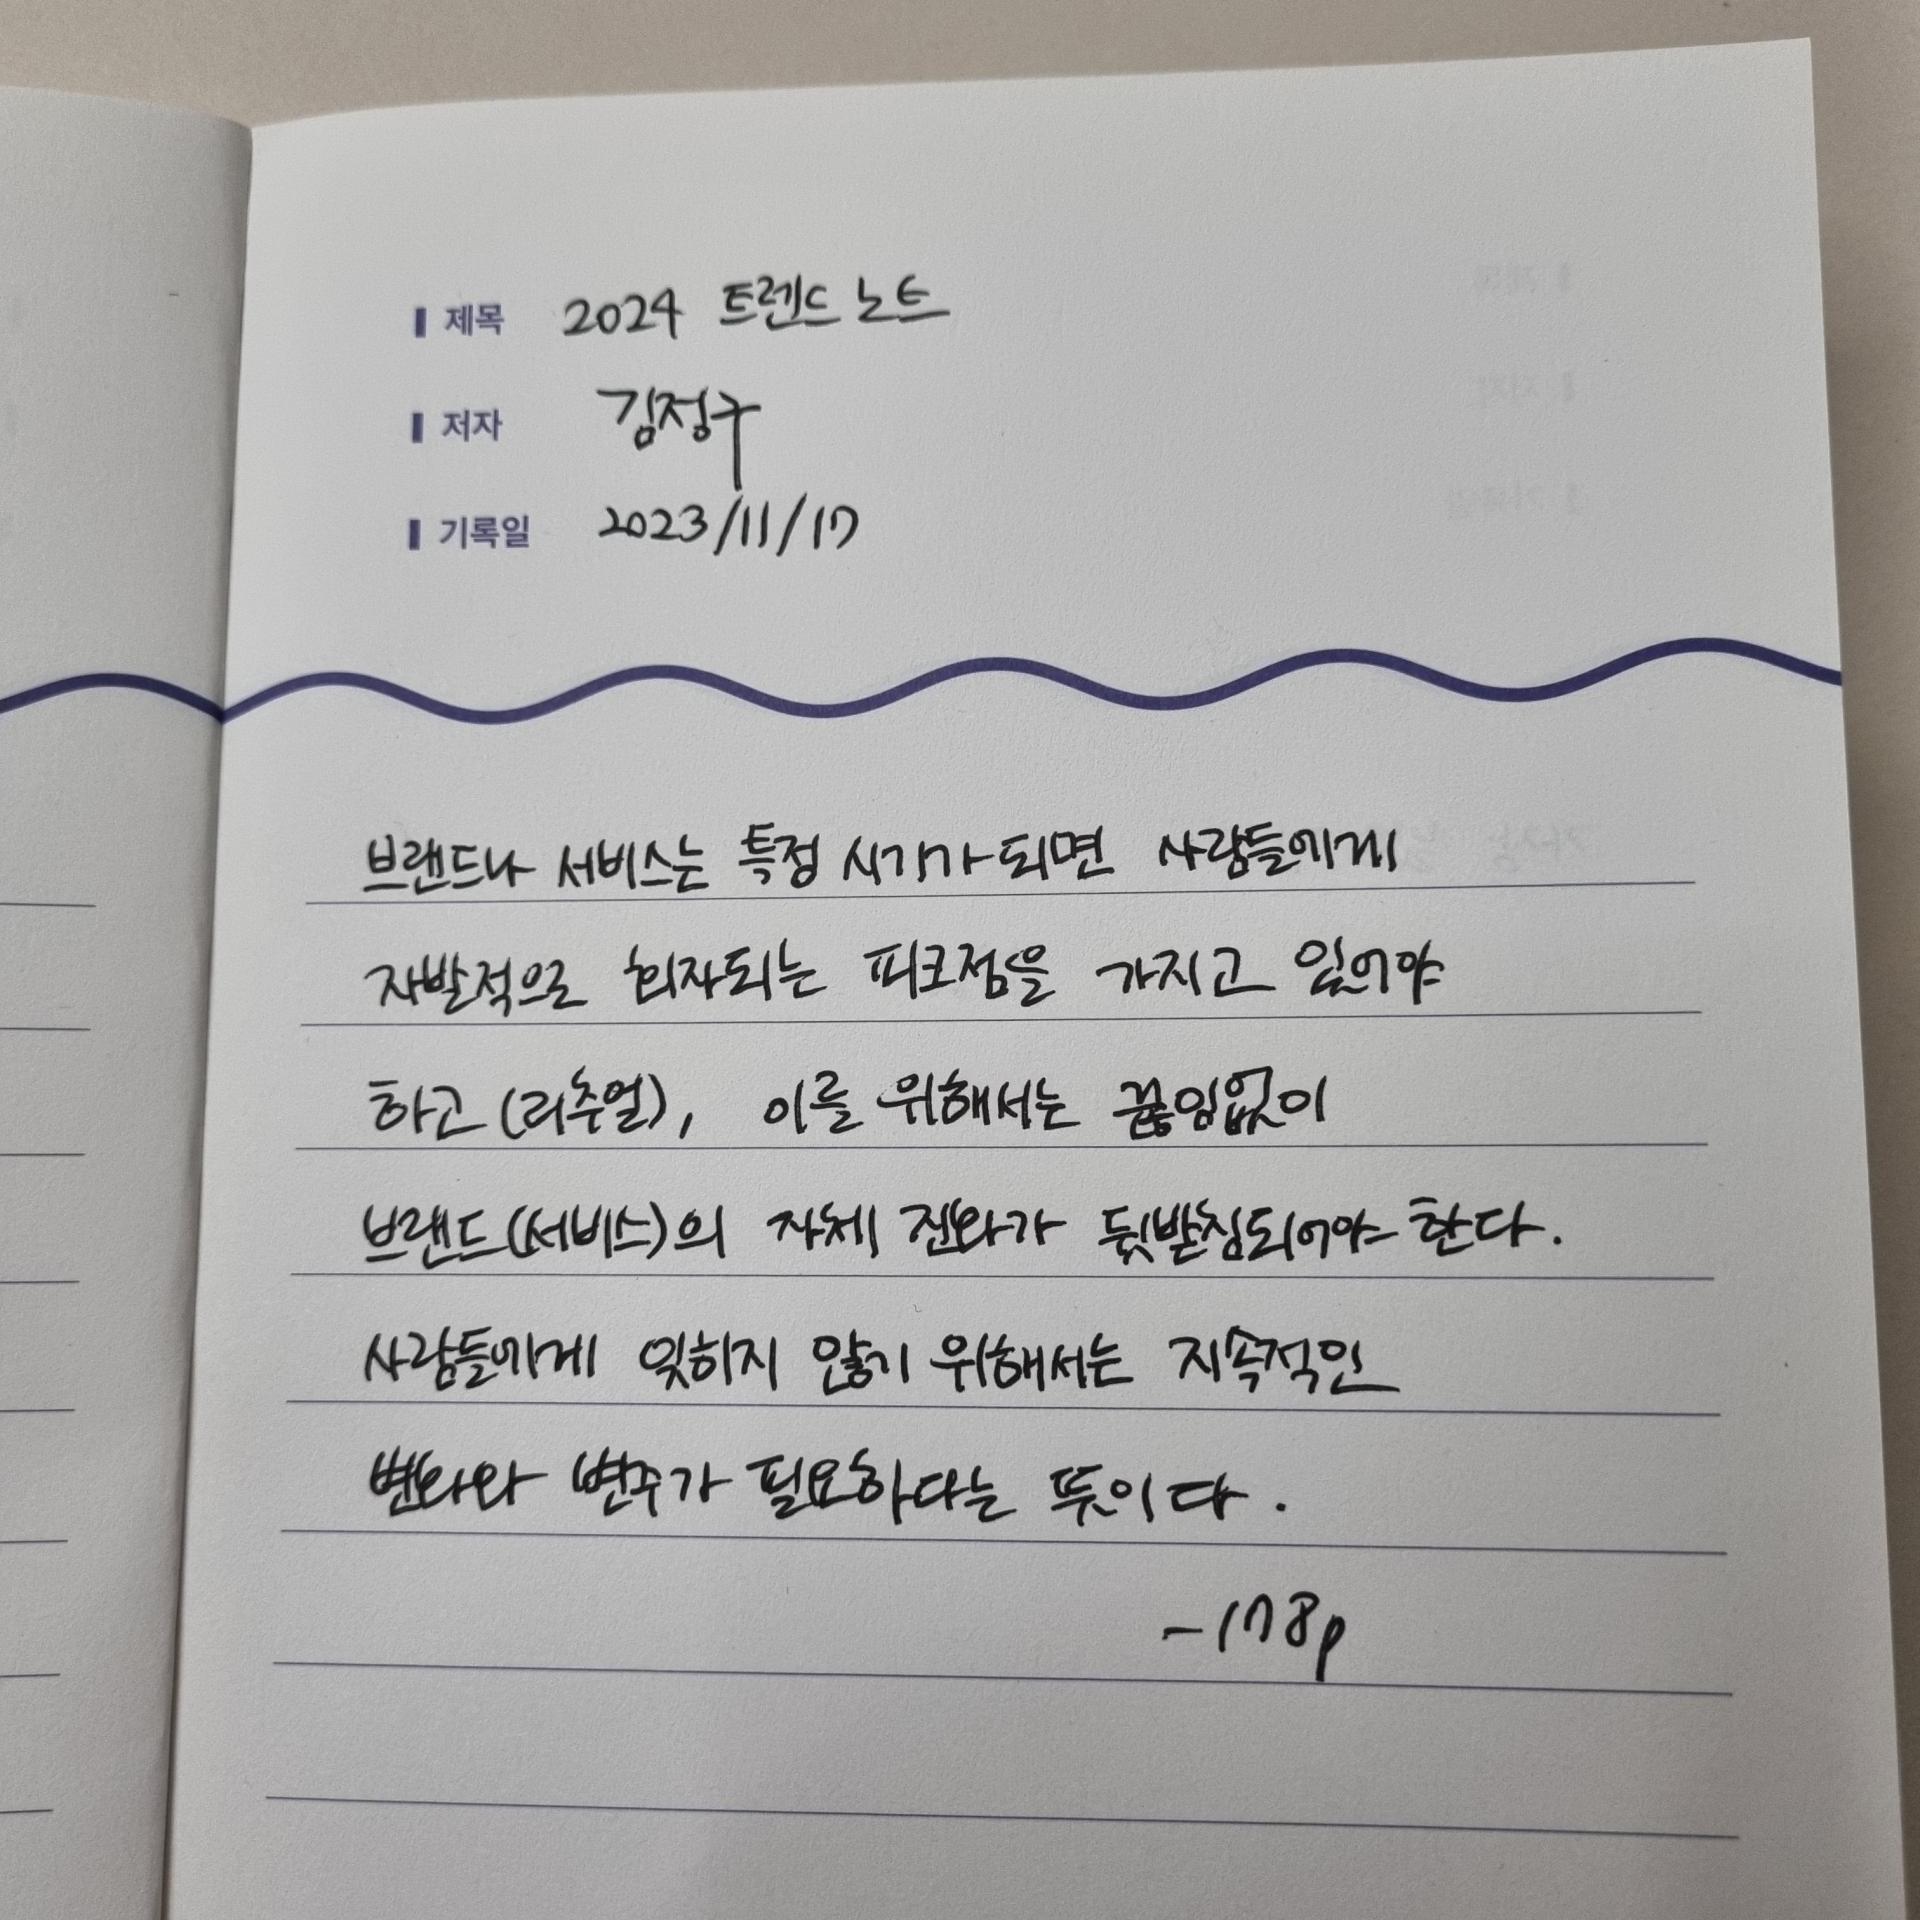 제목 2024 트렌드 노트
저자 김정구
기록일 2023/11/17
브랜드나 서비스는 특정 시기가 되면 사람들에게
자발적으로 회자되는 피크점을 가지고 있어야
하고 (리츄얼), 이를 위해서는 끊임없이
브랜드(서비스)의 자체 진화가 뒷받침되어야 한다.
사람들에게 잊히지 않기 위해서는 지속적인
변화와 변주가 필요하다는 뜻이다.
-178p